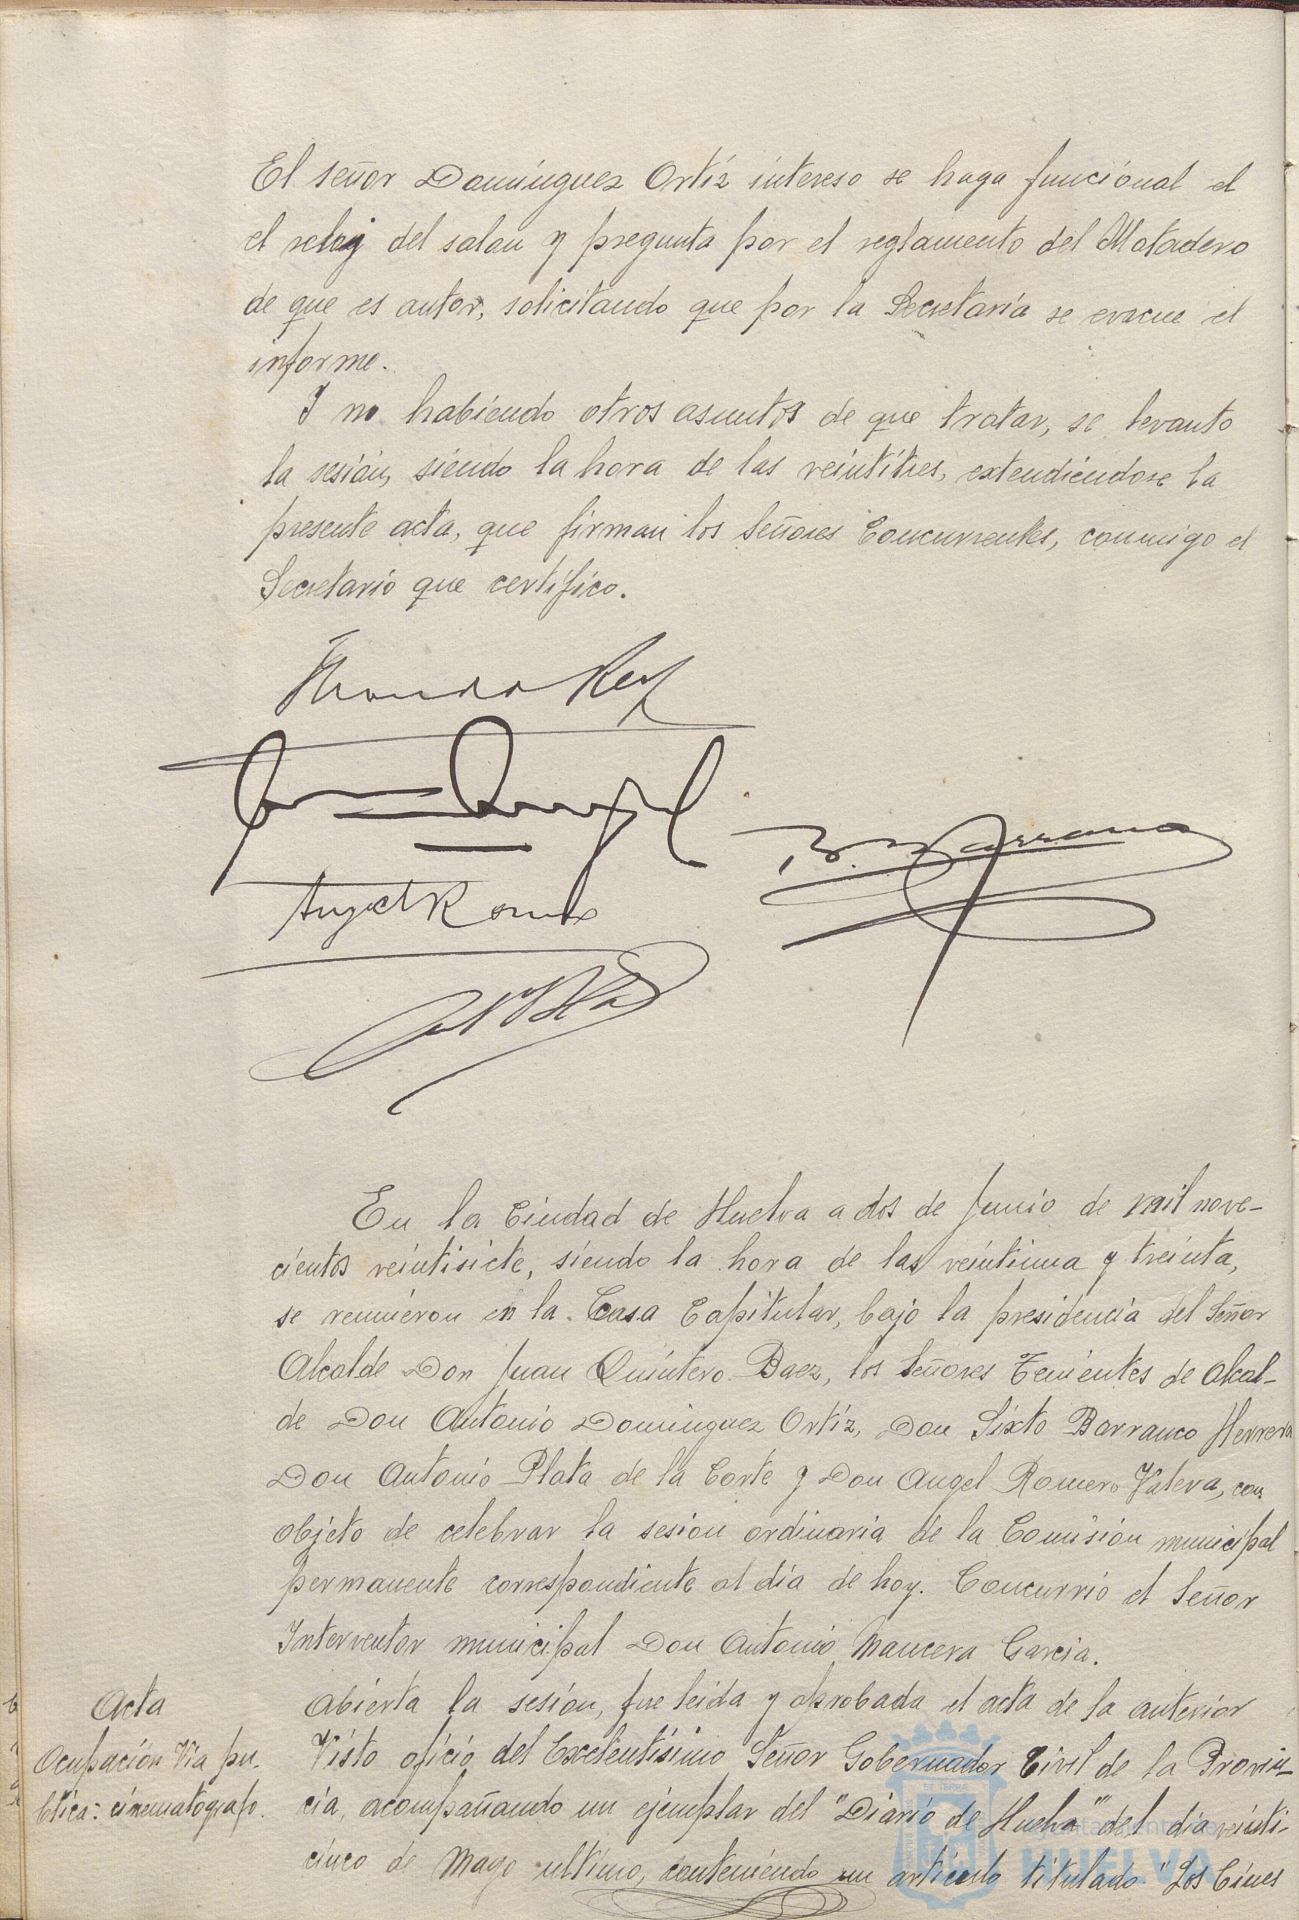 El señor Domínguez Ortíz intereso se haga funcional el
el reloj del salon y pregunta por el reglamento del Matadero
de que es autor, solicitando que por la Secretaría se evacue el
informe.
Y no habiendo otros asuntos de que tratar, se levanto
la sesión, siendo la hora de las veintitres, extendiéndose la
presente acta, que firman los Señores Concurrentes, conmigo el
Secretario que certifico.
Barranco
Angel Romero
En la Ciudad de Huelva a dos de Junio de mil nove-
cientos veintisiete, siendo la hora de las veintiuna y treinta,
se reunieron en la Casa Capitular, bajo la presidencia del Señor
Alcalde Don Juan Quintero Baez, los Señores Tenientes de Alcal-
de Don Antonio Dominguez Ortíz, Don Sixto Barranco Herrera
Don Antonio Plata de la Corte y Don Angel Romero Valera, con
objeto de celebrar la sesion ordinaria de la Comisión municipal
permanente correspondiente al día de hoy. Concurrió el Señor
Interventor municipal Don Antonio Mancera Garcia.
Acta
Abierta la sesión, fue leida y aprobada el acta de la anterior
Ocupación Vía pu-
blica: cinematografo.
Visto oficio del Excelentísimo Señor Gobernador Civil de la Provin-
cia, acompañando un ejemplar del "Diario de Huelva" del día veinti-
cinco de Mayo ultimo, conteniendo un artículo titulado "Los Cines
HUELVA